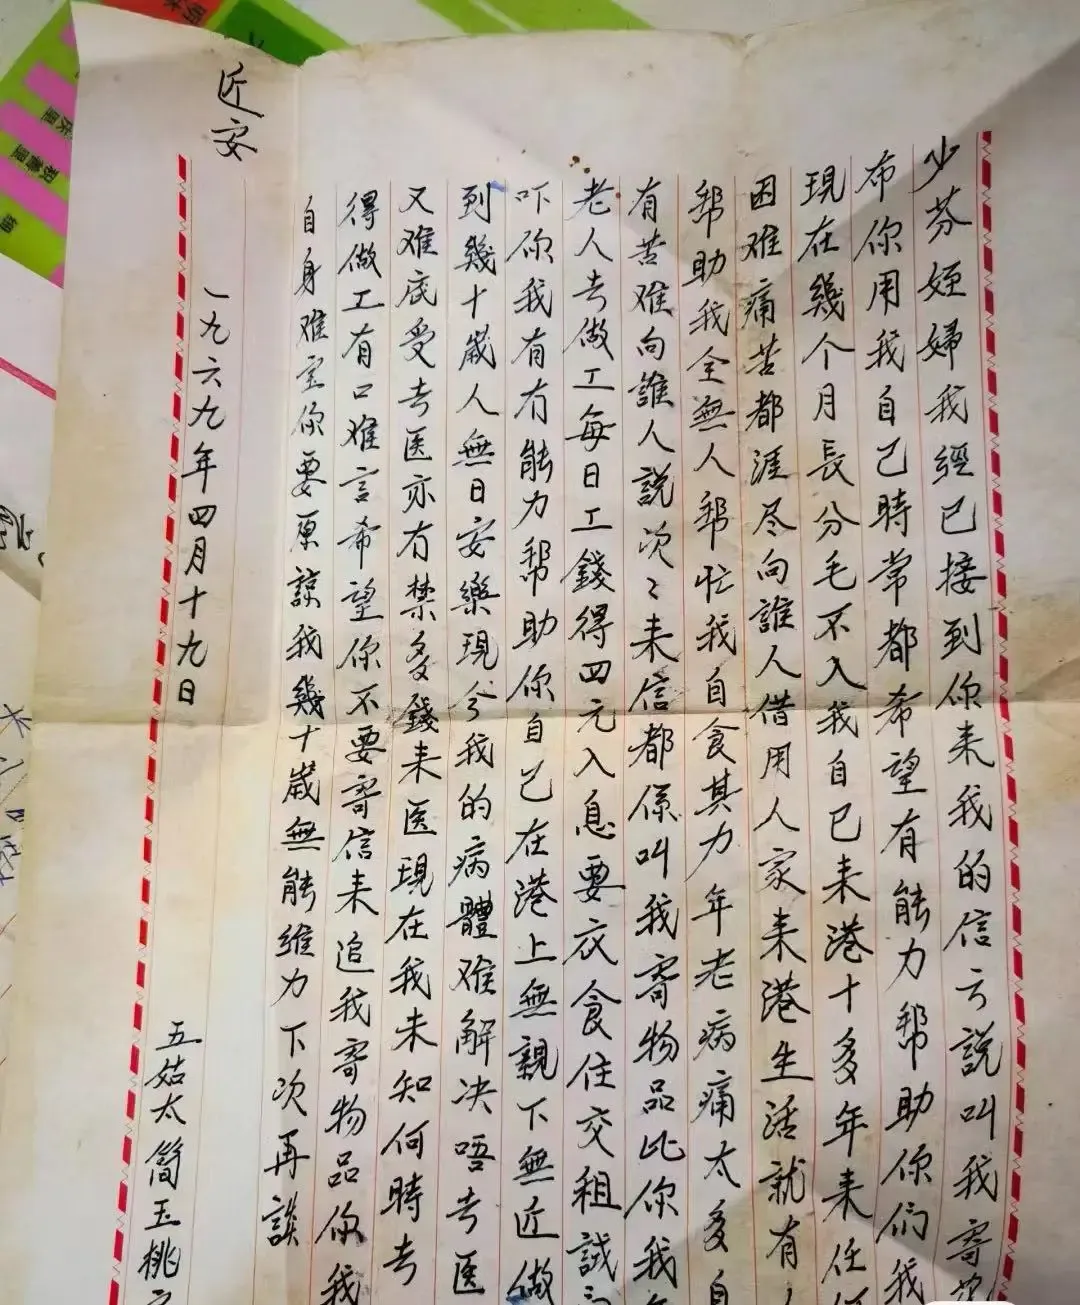 少芬姪婦我經已接到你来我的信云説叫我寄
布你用我自己時常都希望有能力帮助你们我
現在幾个月長分毛不入我自已来港十多年来任
困难痛苦都涯尽向誰人借用人家来港生活就有
帮助我全無人帮忙我自食其力年老病痛太多自
有苦难向誰人説次々来信都係叫我寄物品比你我
老人去做工每日工錢得四元入息要衣食住交租誠
吓你我有冇能力帮助你自己在港上無親下無近做
到幾十歲人無日安樂現今我的病體难解决唔去医
又难底受去医亦冇禁多錢来医現在我未知何時去
得做工有口难言希望你不要寄信来追我寄物品你我
自身难宝你要原諒我幾十歲無能維力下次再談
近安
一九六九年四月十九日
五姑太簡玉桃
积善里